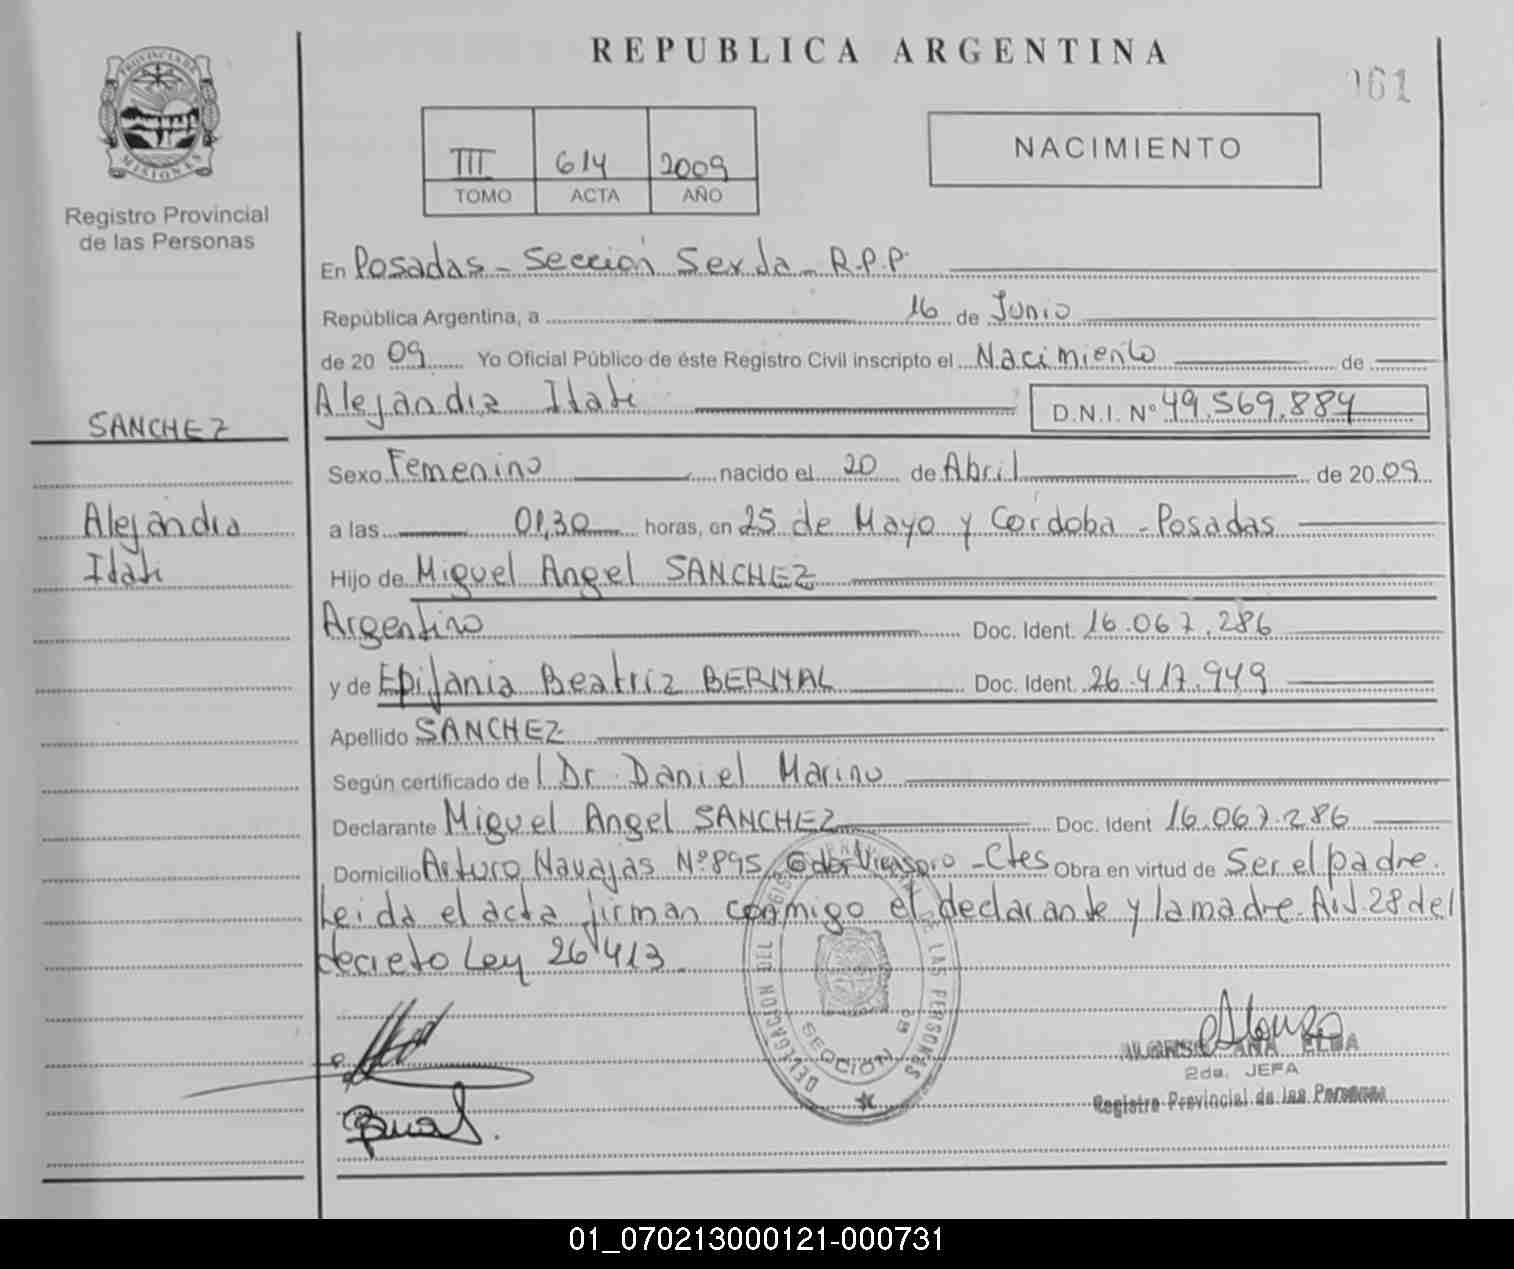 REPUBLICA ARGENTINA
061
PROVINCIA DE MISIONES
Registro Provincial
de las Personas
III 614 2009
TOMO ACTA AÑO
NACIMIENTO
En Posadas - Sección Sexta - R.P.P.
República Argentina, a 16 de Junio
de 20 09 Yo Oficial Público de éste Registro Civil inscripto el Nacimiento de
Alejandra Itati D.N.I. Nº 49.569.884
SANCHEZ
Sexo Femenino nacido el 20 de Abril de 20 09
Alejandra
Itati
a las 01,30 horas, en 25 de Mayo y Córdoba - Posadas
Hijo de Miguel Angel SANCHEZ
Argentino Doc. Ident. 16.067.286
y de Epifania Beatriz BERNAL Doc. Ident. 26.417.949
Apellido SANCHEZ
Según certificado de l Dr. Daniel Marino
Declarante Miguel Angel SANCHEZ Doc. Ident 16.067.286
Domicilio Arturo Navajas Nº 895 Gdor Virasoro - Ctes Obra en virtud de Ser el padre.
Leida el acta firman conmigo el declarante y la madre. Art 28 del
decreto Ley 26413.
DELEGACION DEL REGISTRO PROVINCIAL DE LAS PERSONAS
SECCION 6ª
ALONSO ANA ELBA
2da. JEFA
Registro Provincial de las Personas
01_070213000121-000731